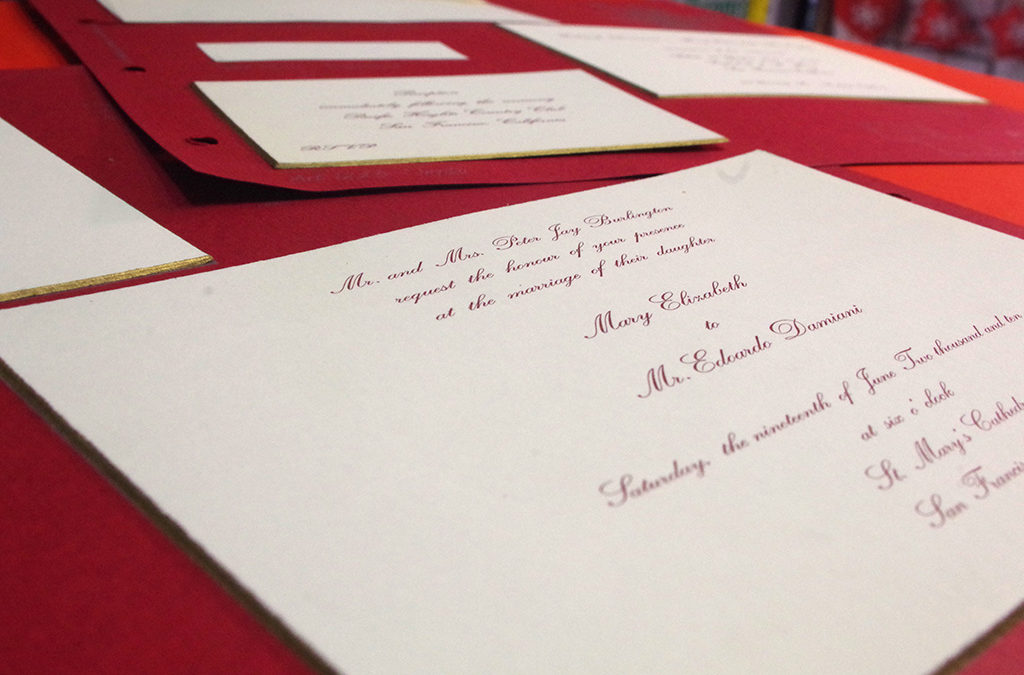 Reception
immediately following the ceremony
Pacific Heights Country Club
San Francisco, California
R.S.V.P.
Mr. and Mrs. Peter Jay Burlington
request the honour of your presence
at the marriage of their daughter
Mary Elizabeth
to
Mr. Edoardo Damiani
Saturday, the nineteenth of June Two thousand and ten
at six o'clock
St. Mary's Cathedr
San Francis